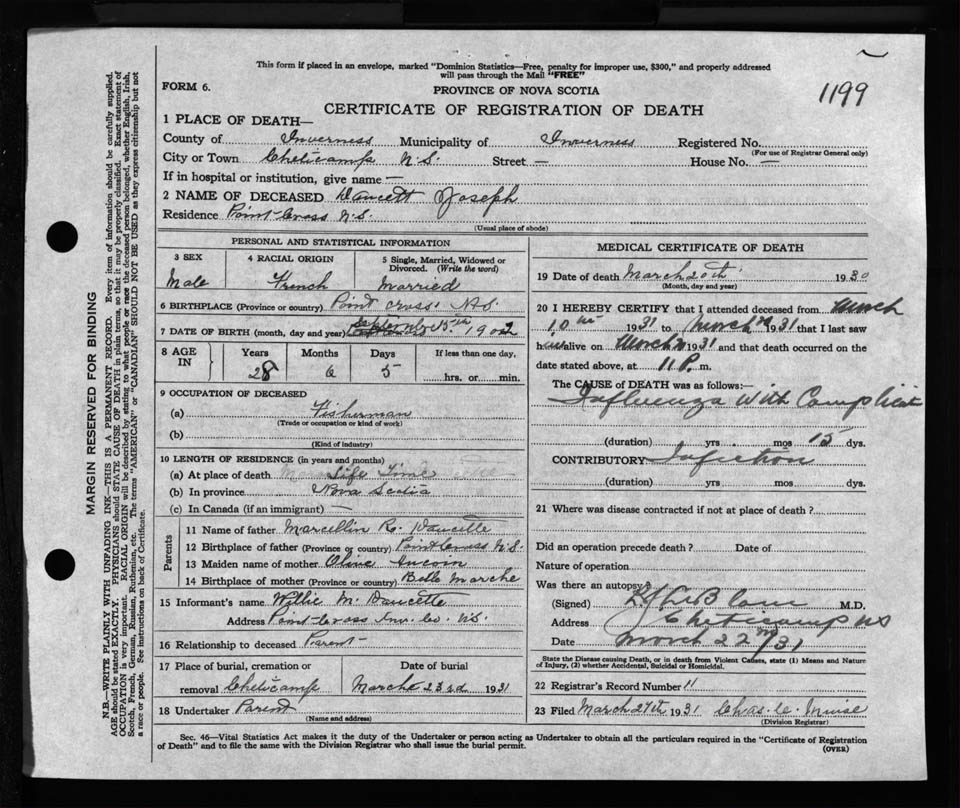 This form if placed in an envelope, marked "Dominion Statistics—Free, penalty for improper use, $300," and properly addressed
will pass through the Mail "FREE"
FORM 6.
PROVINCE OF NOVA SCOTIA
1199
CERTIFICATE OF REGISTRATION OF DEATH
1 PLACE OF DEATH—
County of Inverness Municipality of Inverness Registered No.
(For use of Registrar General only)
City or Town Cheticamp N.S. Street — House No. —
If in hospital or institution, give name —
2 NAME OF DECEASED Daucett Joseph
Residence Point Cross N.S.
(Usual place of abode)
PERSONAL AND STATISTICAL INFORMATION
3 SEX 4 RACIAL ORIGIN 5 Single, Married, Widowed or
Divorced. (Write the word)
Male French Married
6 BIRTHPLACE (Province or country) Point Cross N.S.
7 DATE OF BIRTH (month, day and year) 15th 1902
8 AGE IN Years Months Days If less than one day,
28 6 5 hrs. or min.
9 OCCUPATION OF DECEASED
(a) Fisherman
(Trade or occupation or kind of work)
(b)
(Kind of industry)
10 LENGTH OF RESIDENCE (in years and months)
(a) At place of death Life Time
(b) In province Nova Scotia
(c) In Canada (if an immigrant) —
Parents
11 Name of father Marcellin R. Daucette
12 Birthplace of father (Province or country) Point Cross N.S.
13 Maiden name of mother Olive
14 Birthplace of mother (Province or country) Belle Marche
15 Informant's name Willie M. Daucette
Address Point Cross Inv. Co. N.S.
16 Relationship to deceased Parent
17 Place of burial, cremation or Date of burial
removal Cheticamp March 23rd 1931
18 Undertaker Parent
(Name and address)
MEDICAL CERTIFICATE OF DEATH
19 Date of death March 20th 1930
(Month, day and year)
20 I HEREBY CERTIFY that I attended deceased from March
10th 1931 to March 1931 that I last saw
h alive on March 1931 and that death occurred on the
date stated above, at 11 P. m.
The CAUSE OF DEATH was as follows:—
Influenza With Complicat
(duration) yrs. mos 15 dys.
CONTRIBUTORY Infection
(duration) yrs. mos dys.
21 Where was disease contracted if not at place of death?
Did an operation precede death? Date of
Nature of operation
Was there an autopsy?
(Signed) M.D.
Address Cheticamp NS
Date March 22nd/31
State the Disease causing Death, or in death from Violent Causes, state (1) Means and Nature
of Injury, (2) whether Accidental, Suicidal or Homicidal.
22 Registrar's Record Number 11
23 Filed March 27th 1931 Chas. Muise
(Division Registrar)
Sec. 46—Vital Statistics Act makes it the duty of the Undertaker or person acting as Undertaker to obtain all the particulars required in the "Certificate of Registration
of Death" and to file the same with the Division Registrar who shall issue the burial permit.
(OVER)
MARGIN RESERVED FOR BINDING
N.B.—WRITE PLAINLY WITH UNFADING INK—THIS IS A PERMANENT RECORD. Every item of information should be carefully supplied.
AGE should be stated EXACTLY. PHYSICIANS should STATE CAUSE OF DEATH in plain terms, so that it may be properly classified. Exact statement of
OCCUPATION is very important. RACIAL ORIGIN will be described by stating to what people or race the deceased person belonged, whether English, Irish,
Scotch, French, German, Russian, Ruthenian, etc. The terms "AMERICAN" or "CANADIAN" SHOULD NOT BE USED as they express citizenship but not
a race or people. See instructions on back of Certificate.